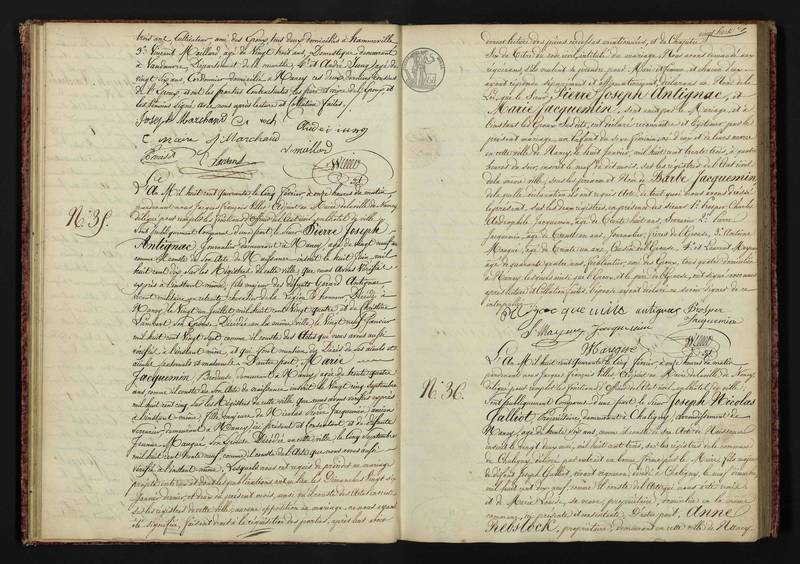 trois ans, Cultivateur, ami des Epoux, tous deux domiciliés à
3° Vincent Maillard, âgé de Vingt huit ans, Domestique, demeurant
à Vandœuvre, Département de la meurthe, 4° et André Jung, âgé de
vingt six ans, Cordonnier domicilié à Nancy, ces deux derniers Cousins
de l'Epoux, et ont les parties Contractantes, les père et mère de l'Epoux, et
les témoins signé avec nous après lecture et Collation faites.
Joseph Marchand
André jung
Marchand
V maillard
N.° 35.
L'an Mil huit cent quarante, le Cinq février, à onze heures du matin
pardevant nous Jacques françois Villes, adjoint au Maire de la ville de Nancy
délégué pour remplir les fonctions d'Officier de l'Etat civil, en l'hôtel de ville,
Sont publiquement Comparus, d'une part, le Sieur Pierre Joseph
Antignac, Journalier, demeurant à Nancy, âgé de vingt neuf ans
comme il conste de son Acte de Naissance inscrit le huit Juin, mil
huit cent dix, sur les Registres de cette ville, que nous avons Vérifiés
exprès à l'instant même, fils majeur des défunts Gérard Antignac
vivant militaire en retraite, chevalier de la Légion d'honneur, Décédé à
Nancy, le Vingt un juillet mil huit cent Vingt quatre, et de Christine
Lambert, son Epouse, Décédée en la même ville, le Vingt neuf Janvier
mil huit cent Vingt sept, comme il conste des Actes que nous avons aussi
vérifiés à l'instant même, et qui font mention du Décès de ses aïeuls et
aïeules paternels et maternels. D'autre part, Marie
Jacquemin, Brodeuse, demeurant à Nancy, âgée de trente quatre
ans, comme il conste de son Acte de naissance, inscrit le Vingt cinq septembre
mil huit cent cinq, sur les Registres de cette ville, que nous avons vérifiés exprès
à l'instant même, fille majeure de Nicolas Sivry Jacquemin, ancien
serrurier, demeurant à Nancy, ici présent et Consentant, et de défunte
Jeanne Mangué, son Epouse, Décédée en cette ville, le Cinq septembre
mil huit cent trente neuf, comme il conste de l'Acte que nous avons aussi
vérifié à l'instant même. Lesquels nous ont requis de procéder au mariage
projeté entre eux et dont les publications ont eu lieu les Dimanches Vingt six
Janvier dernier, et deux du présent mois, ainsi qu'il conste des Actes inscrits
sur les registres de cette ville ; aucune opposition à ce mariage ne nous ayant
été signifiée, faisant droit à la réquisition des parties, après leur avoir
donné lecture des pièces ci-dessus mentionnées, et du Chapitre
Six du Titre du code civil, intitulé du mariage, Nous avons demandé aux
requérans s'ils veulent se prendre pour Mari et femme, et chacun d'eux
ayant répondu séparément et affirmativement, déclarons au Nom de la
Loi, que le Sieur Pierre Joseph Antignac, et
Marie Jacquemin, sont unis par le Mariage, et à
l'instant les Epoux susdits, ont déclaré reconnaître et légitimer par le
présent mariage, un Enfant du sexe féminin, né d'eux et de leurs œuvres
en cette ville de Nancy, le huit Janvier, mil huit cent trente trois, à quatre
heures du soir, inscrit le neuf du dit mois, sur les registres de l'Etat civil
de la même ville, sous les prénoms et Nom de Barbe Jacquemin,
de laquelle déclaration ils ont requis Acte. De tout quoi nous avons dressé
le présent, sur les deux registres, en présence des sieurs 1° Prosper Charles
Jacquemin, âgé de Trente huit ans, Serrurier, 2°
Jacquemin, âgé de Trente un ans, Journalier, frères de l'Epouse, 3° Antoine
Mangué, âgé de Trente un ans, Cousin de l'Epouse, 4° et Laurent Mayeur
âgé de quarante quatre ans, ami des Epoux, tous quatre domiciliés
à Nancy, et ont l'Epoux, et le père de l'Epouse, ont signé avec nous
après lecture et Collation faites, l'Epouse ayant déclaré ne savoir signer de ce
interpellée.
antignac Prosper
Jacquemin
Mayeur Jacquemin
Mangué
N.° 36.
L'an Mil huit cent quarante, le Cinq février, à onze heures du matin
pardevant nous Jacques françois Villes, Adjoint au Maire de la ville de Nancy
délégué pour remplir les fonctions d'Officier de l'Etat civil, en l'hôtel de ville,
Sont publiquement Comparus, d'une part, le Sieur Joseph Nicolas
Galliot, Propriétaire, demeurant à Chaligny, arrondissement de
Nancy, âgé de trente six ans, comme il conste de son Acte de Naissance
inscrit le vingt deux mai, mil huit cent trois, sur les registres de la commune
de Chaligny, délivré par extrait en bonne forme par le Maire, fils majeur
de défunt Joseph Galliot, vivant vigneron, décédé à Chaligny, le neuf
mil huit cent dix neuf, comme il conste de l'Acte qui nous a été remis
et de Marie Louis, sa veuve, propriétaire, domiciliée en la même
commune, ici présente et consentante. D'autre part, Anne
Rebstock, propriétaire, demeurant en cette ville de Nancy,